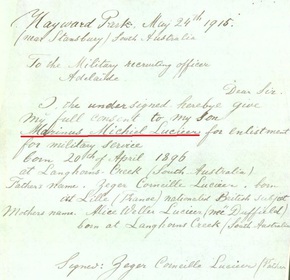 Hayward Park. May 24th 1915.
(near Stansbury) South Australia
To the Military recruiting officer
Adelaide
Dear Sir.
I the undersigned hereby give
my full consent to my son
Marinus Michiel Lucieer for enlistment
for military service
born 20th of April 1896
at Langhorns Creek (South Australia)
Fathers name. Zeger Corneille Lucieer. born
at Lille (France) nationated British subject
Mothers name. Alice Welter Lucieer (neé Duffield)
born at Langhorns Creek (South Australia
Signed: Zeger Corneille Lucieer